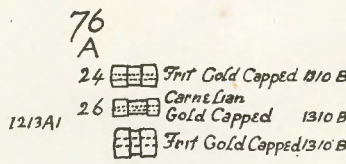 76
A
24 Frit Gold Capped 1310 B
26 Carnelian
Gold Capped 1310 B
1213A1
Frit Gold Capped 1310 B